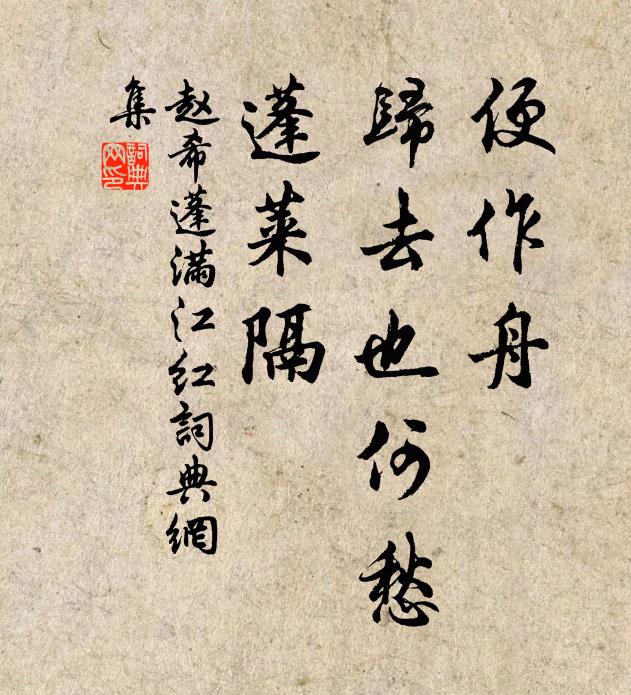 便作舟
歸去也何愁
蓬莱隔
赵希蓬满江红詞典網
集
詞典
网印